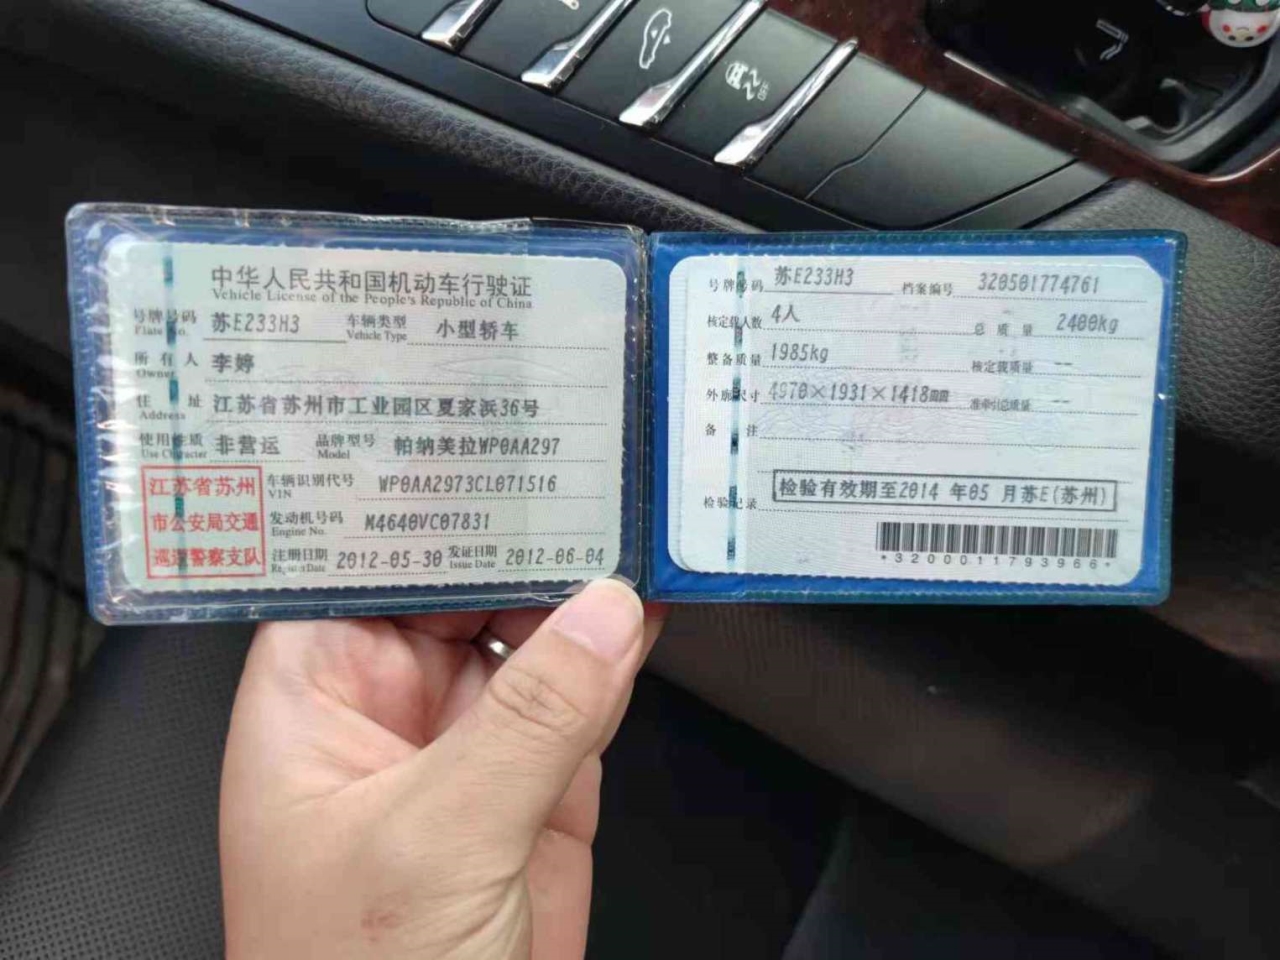 中华人民共和国机动车行驶证
Vehicle License of the People's Republic of China
号牌号码 苏E233H3 车辆类型 小型轿车
Plate No. Vehicle Type
所有人 李婷
Owner
住址 江苏省苏州市工业园区夏家浜36号
Address
使用性质 非营运 品牌型号 帕纳美拉WP0AA297
Use Character Model
江苏省苏州
市公安局交通
巡逻警察支队
车辆识别代号 WP0AA2973CL071516
VIN
发动机号码 M4640VC07831
Engine No.
注册日期 2012-05-30 发证日期 2012-06-04
Register Date Issue Date
号牌号码 苏E233H3 档案编号 320501774761
核定载人数 4人 总质量 2400kg
整备质量 1985kg 核定载质量 --
外廓尺寸 4970×1931×1418mm 准牵引总质量 --
备注
检验记录 检验有效期至2014 年05 月苏E(苏州)
*3200011793966*
OFF